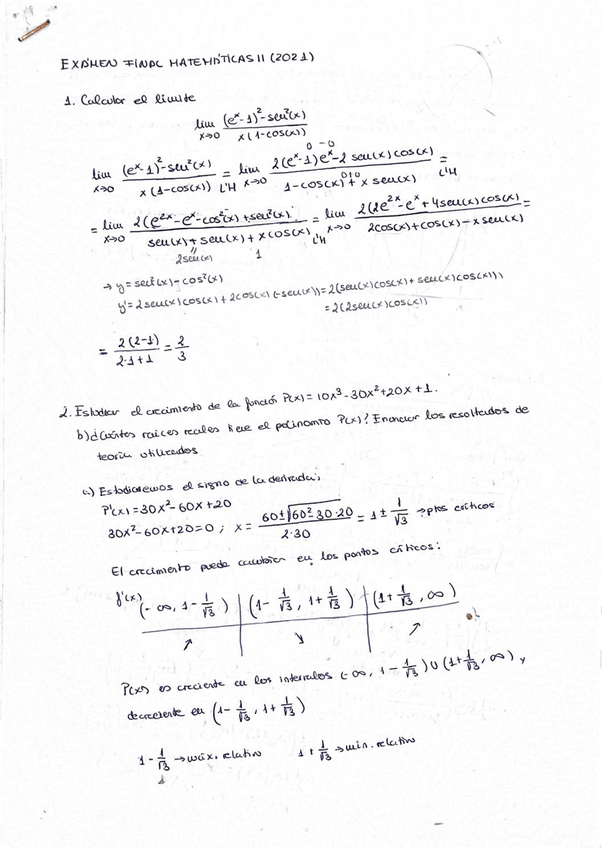 EXÁMEN FINAL MATEMÁTICAS II (2021)
1. Calcular el límite
lim x→0 (e^x-1)^2-sen^2(x) / x(1-cos(x))
lim x→0 (e^x-1)^2-sen^2(x) / x(1-cos(x)) = L'H lim x→0 2(e^x-1)e^x-2sen(x)cos(x) / 1-cos(x)+x sen(x) = L'H
= lim x→0 2(e^2x-e^x-cos^2(x)+sen^2(x) / sen(x)+sen(x)+xcos(x) = L'H lim x→0 2(2e^2x-e^x+4sen(x)cos(x) / 2cos(x)+cos(x)-xsen(x) =
2sen(x) 1
→ y=sen^2(x)-cos^2(x)
y'=2sen(x)cos(x)+2cos(x)(-sen(x))=2(sen(x)cos(x)+sen(x)cos(x))
=2(2sen(x)cos(x))
= 2(2-1) / 2·1+1 = 2/3
2. Estudiar el crecimiento de la función P(x)=10x^3-30x^2+20x+1.
b) ¿Cuántas raíces reales tiene el polinomio P(x)? Enunciar los resultados de
teoría utilizados
a) Estudiaremos el signo de la derivada;
P'(x)=30x^2-60x+20
30x^2-60x+20=0; x = 60±√60^2·30·20 / 2·30 = 1 ± 1/√3 → ptos críticos
El crecimiento puede cambiar en los puntos críticos:
f'(x) (-∞, 1-1/√3) | (1-1/√3, 1+1/√3) | (1+1/√3, ∞)
↗ ↘ ↗
P(x) es creciente en los intervalos (-∞, 1-1/√3) ∪ (1+1/√3, ∞) y
decreciente en (1-1/√3, 1+1/√3)
1-1/√3 → máx. relativo 1+1/√3 → min. relativo